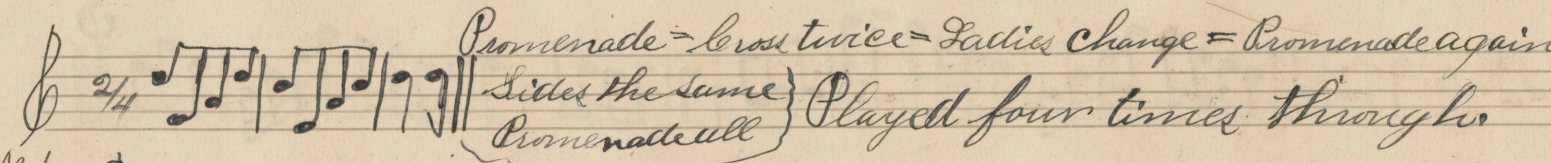 2/4
Promenade = Cross twice = Ladies change = Promenade again
Sides the same
Promenade all
Played four times through.